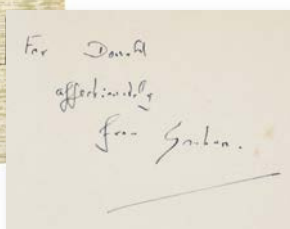 For Donald
affectionately
from Graham.